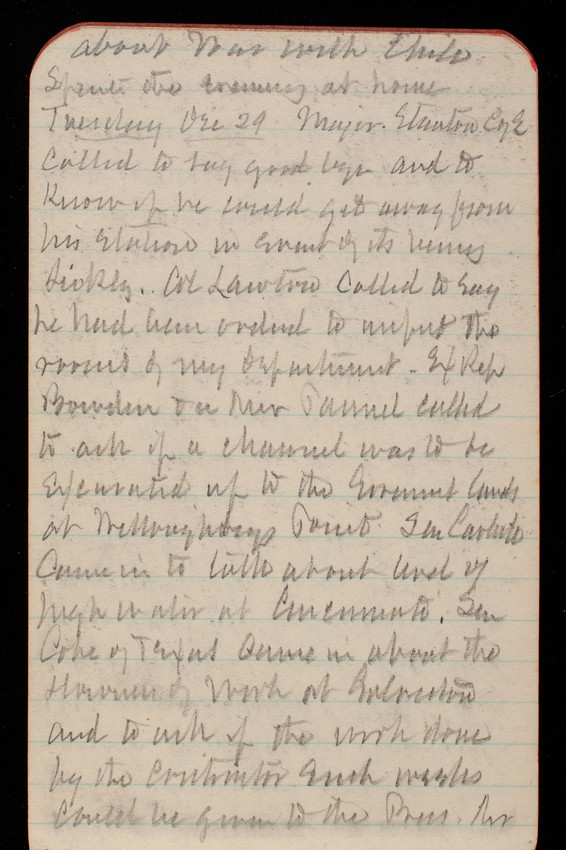 about War with Chile
Spent the evening at home
Tuesday Dec 29 Major Stanton C of E
called to say good bye and to
know if he could get away from
his station in event of its being
sickly. Col Lawton called to say
he had been ordered to inspect the
rooms of my Department. Ex Rep
Bowden Tunnel called
to ask if a channel was to be
Excavated up to the Goverment lands
at Willoughbys Point. Sen Carlisle
Came in to talk about level of
high water at Cincinnati. Sen
Coke of Texas Came in about the
slowness of work at Galveston
and to ask if the work done
by the Contractor Each week
could be given to the Press.